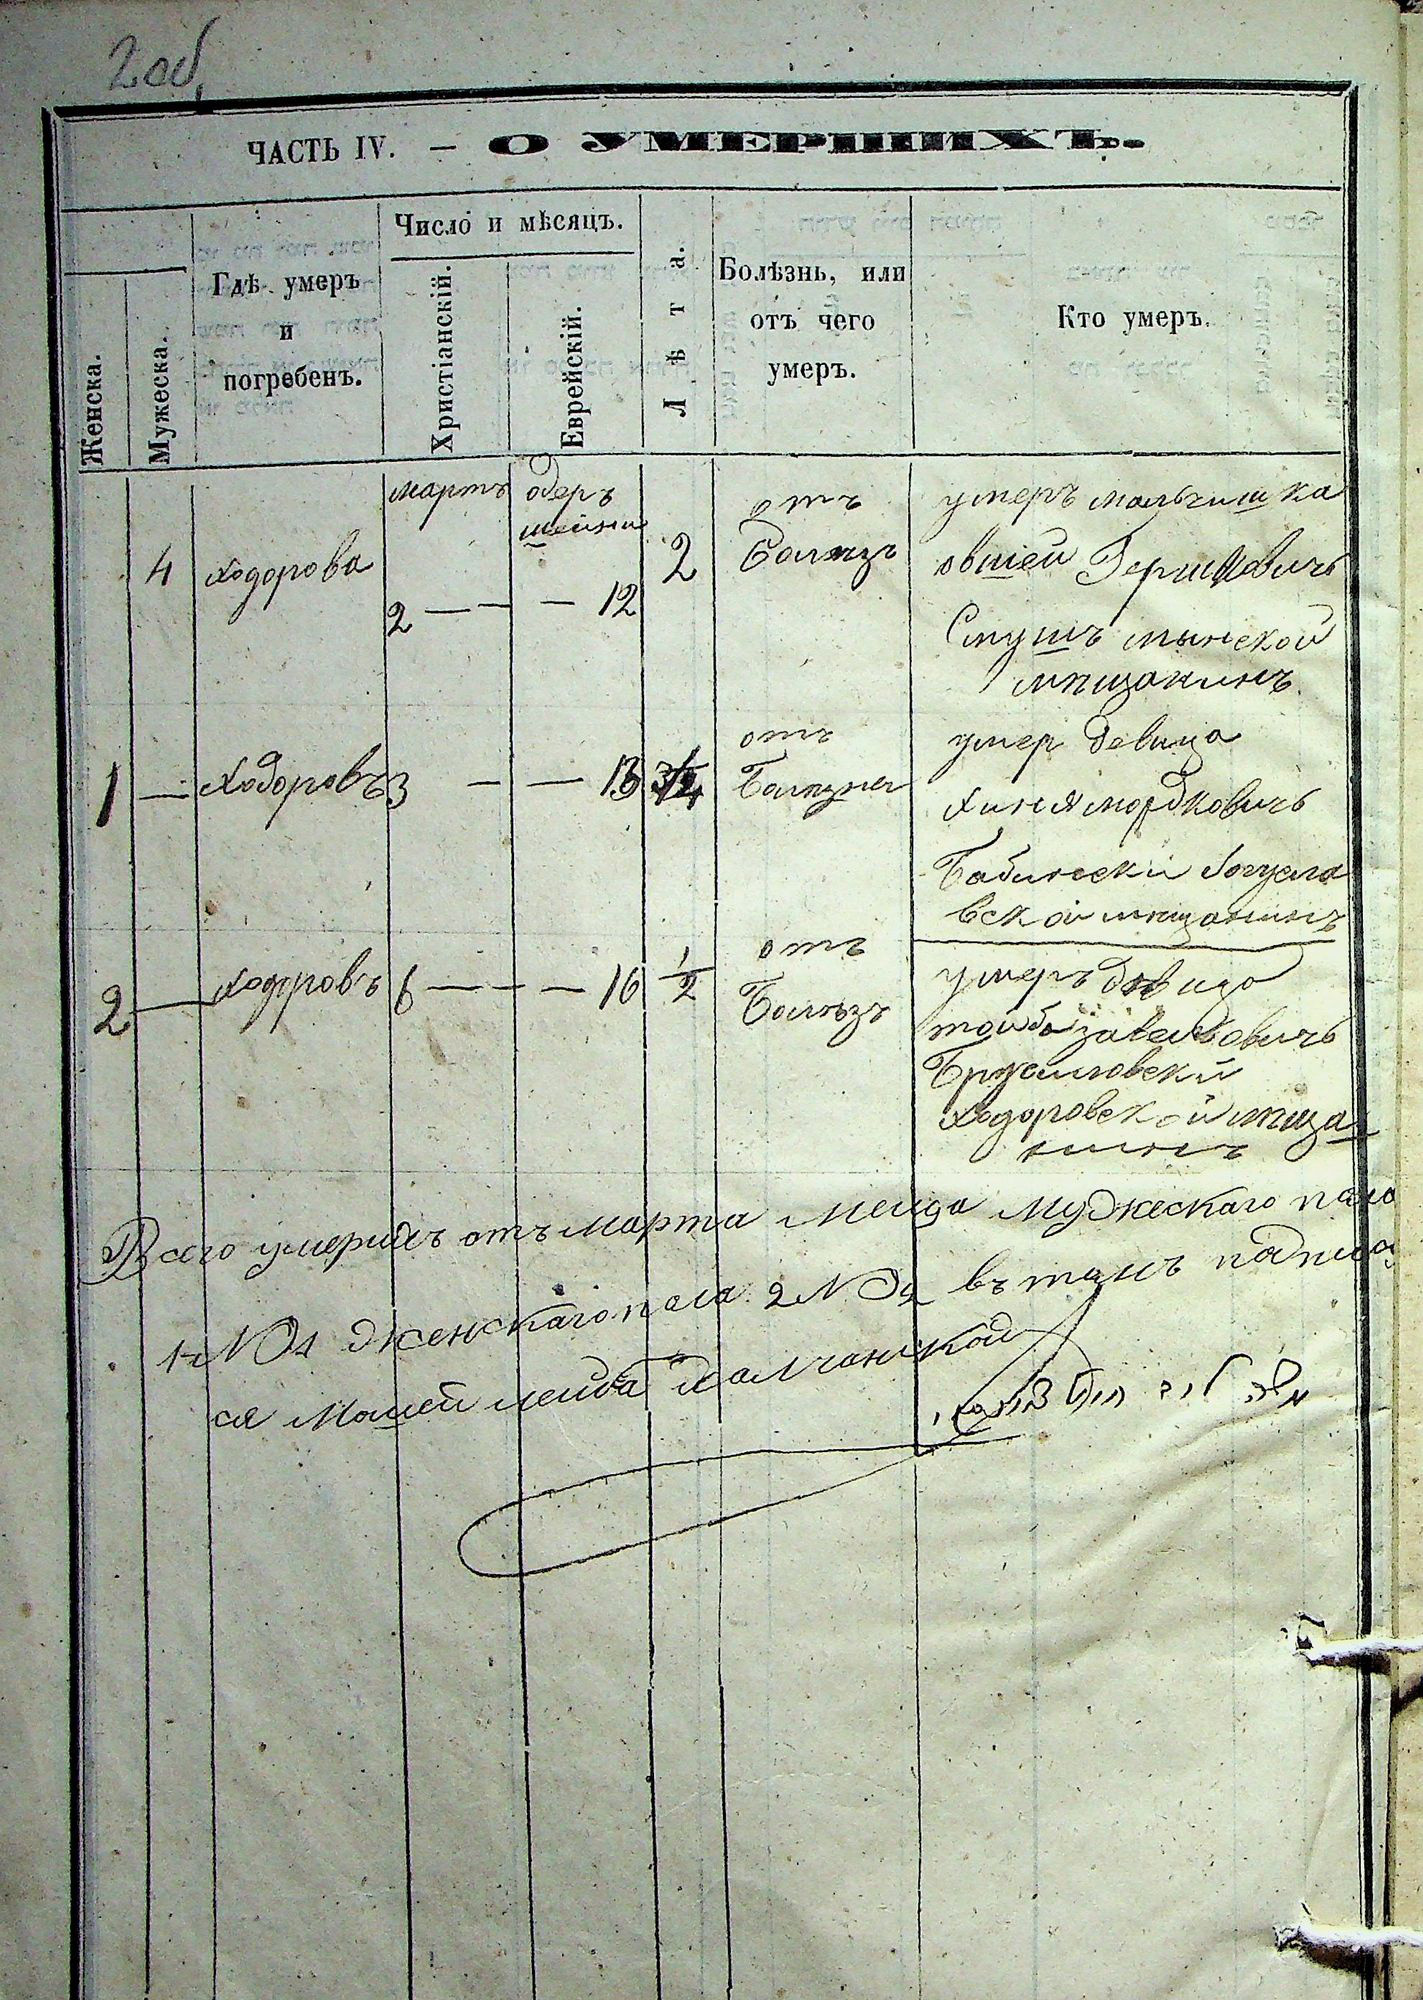 2 об.
ЧАСТЬ IV. — О УМЕРШИХЪ.
Женска.
Мужеска.
Гдѣ умеръ
и
погребенъ.
Число и мѣсяцъ.
Христіанскій.
Еврейскій.
Лѣта.
Болѣзнь, или
отъ чего
умеръ.
Кто умеръ.
4 ходорова
мартъ
2 — — — 12
одеръ
шейни
2
отъ
болѣзъ
умеръ мальчишка
овшей Гершковичъ
Смушъ
мѣщанинъ
1 — Ходоровъ 3 — — 13
отъ
умер девица
хиня мордковичъ
Бабински богусла
вской мѣщанинъ
2 — ходоровъ 6 — — — 16 1/2
отъ
Болѣзъ
умеръ девица
тойба завелковичъ
Ходоровской мѣща
нинъ
Всего умершихъ отъ марта месяца муджескаго пола
1 №4 дженскаго пола 2 №2 въ темъ подписа
ся Мошей лейба